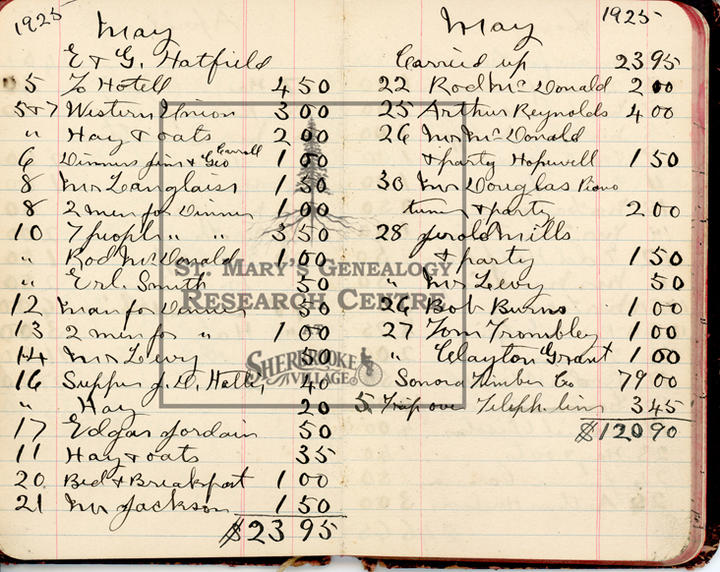 1925 May
E & G. Hatfield
5 To Hotell 4 50
5&7 Western Union 3 00
" Hay & oats 2 00
6 Dinners Jim & Geo Carroll 1 00
8 Mr Langlaise 1 50
8 2 men for Dinner 1 00
10 7 people " " 3 50
" Rod McDonald 1 00
" Erl. Smith 50
12 man for Dinner 50
13 2 men for " 1 00
14 Mr Levy 50
16 Supper J. D. 40
" Hay 20
17 Edgar Jordain 50
11 Hay & oats 35
20 Bed & Breakfast 1 00
21 Mr Jackson 1 50
$23 95
May 1925
Carried up 23 95
22 Rod McDonald 2 00
25 Arthur Reynolds 4 00
26 Mr McDonald
& party Hopewell 1 50
30 Mr Douglas Piano
tuner & party 2 00
28 Jerold Mills
& party 1 50
" Mr Levy 50
26 Bob Burns 1 00
27 Tom Trombley 1 00
" Clayton Grant 1 00
Sonora Timber Co 79 00
5 Trip over Teleph. line 3 45
$120 90
St. Mary's Genealogy
Research Centre
at
Sherbrooke
Village